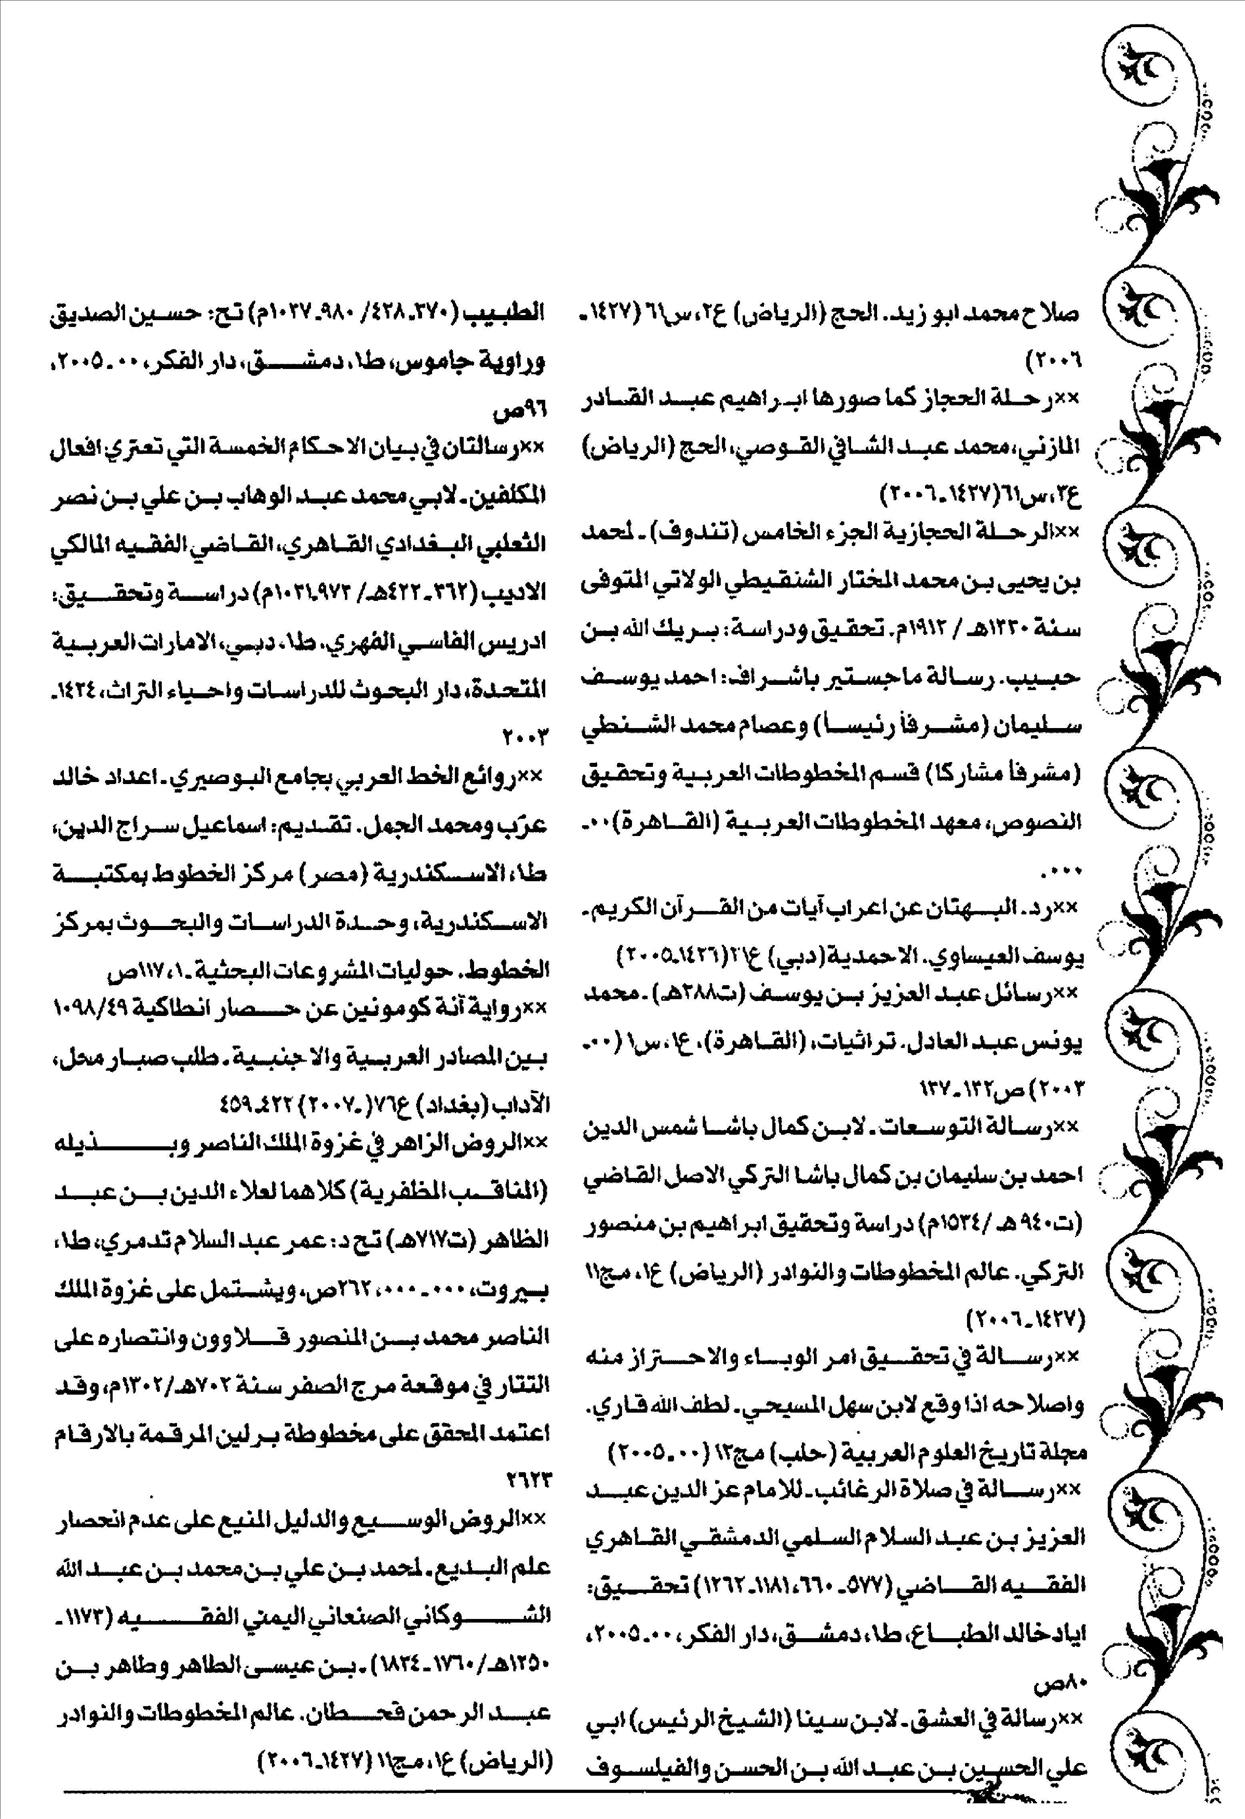 صلاح محمد ابو زيد. الحج (الرياض) ع٢، س٦١ (١٤٢٧ـ
٢٠٠٦)
××رحلة الحجاز كما صورها ابراهيم عبد القادر
المازني، محمد عبد الشافي القوصي، الحج (الرياض)
ع٣، س٦١(١٤٢٧ـ٢٠٠٦)
××الرحلة الحجازية الجزء الخامس (تندوف) ـ لمحمد
بن يحيى بن محمد المختار الشنقيطي الولاتي المتوفى
سنة ١٣٣٠هـ / ١٩١٢م. تحقيق ودراسة: بريك الله بن
حبيب. رسالة ماجستير باشراف: احمد يوسف
سليمان (مشرفاً رئيساً) وعصام محمد الشنطي
(مشرفاً مشاركا) قسم المخطوطات العربية وتحقيق
النصوص، معهد المخطوطات العربية (القاهرة)٠٠ـ
٠٠٠.
××رد. البهتان عن اعراب آيات من القرآن الكريم.
يوسف العيساوي. الاحمدية(دبي) ع٢١(١٤٢٦ـ٢٠٠٥)
××رسائل عبد العزيز بن يوسف (ت٣٨٨هـ) ـ محمد
يونس عبد العادل. تراثيات، (القاهرة)، ع١، س١ (٠٠ـ
٢٠٠٣) ص١٣٢ـ١٣٧
××رسالة التوسعات ـ لابن كمال باشا شمس الدين
احمد بن سليمان بن كمال باشا التركي الاصل القاضي
(ت٩٤٠هـ /١٥٣٤م) دراسة وتحقيق ابراهيم بن منصور
التركي. عالم المخطوطات والنوادر (الرياض) ع١، مج١١
(١٤٢٧ـ٢٠٠٦)
××رسالة في تحقيق امر الوباء والاحتراز منه
واصلاحه اذا وقع لابن سهل المسيحي ـ لطف الله قاري.
مجلة تاريخ العلوم العربية (حلب) مج١٣ (٠٠ـ٢٠٠٥)
××رسالة في صلاة الرغائب ـ للامام عز الدين عبد
العزيز بن عبد السلام السلمي الدمشقي القاهري
الفقيه القاضي (٥٧٧ـ ٦٦٠، ١١٨١ـ١٢٦٢) تحقيق:
اياد خالد الطباع، ط١، دمشق، دار الفكر، ٠٠ـ٢٠٠٥،
٨٠ص
××رسالة في العشق ـ لابن سينا (الشيخ الرئيس) ابي
علي الحسين بن عبد الله بن الحسن والفيلسوف
الطبيب (٣٧٠ـ٤٢٨/ ٩٨٠ـ١٠٣٧م) تح: حسين الصديق
وراوية جاموس، ط١، دمشق، دار الفكر، ٠٠ـ٢٠٠٥،
٩٦ص
××رسالتان في بيان الاحكام الخمسة التي تعتري افعال
المكلفين ـ لابي محمد عبد الوهاب بن علي بن نصر
الثعلبي البغدادي القاهري، القاضي الفقيه المالكي
الاديب (٣٦٢ـ٤٢٢هـ/ ٩٧٣ـ١٠٣١م) دراسة وتحقيق:
ادريس الفاسي الفهري، ط١، دبي، الامارات العربية
المتحدة، دار البحوث للدراسات واحياء التراث، ١٤٢٤ـ
٢٠٠٣
××روائع الخط العربي بجامع البوصيري ـ اعداد خالد
عزّب ومحمد الجمل. تقديم: اسماعيل سراج الدين،
ط١، الاسكندرية (مصر) مركز الخطوط بمكتبة
الاسكندرية، وحدة الدراسات والبحوث بمركز
الخطوط. حوليات المشروعات البحثية ـ١، ١١٧ص
××رواية آنة كومونين عن حصار انطاكية ١٠٩٨/٤٩
بين المصادر العربية والاجنبية ـ طلب صبار محل،
الآداب (بغداد) ع٧٦(ـ٢٠٠٧) ٤٢٢ـ٤٥٩
××الروض الزاهر في غزوة الملك الناصر وبذيله
(المناقب المظفرية) كلاهما لعلاء الدين بن عبد
الظاهر (ت٧١٧هـ) تح د: عمر عبد السلام تدمري، ط١،
بيروت، ٠٠٠ـ٠٠٠، ٢٦٢ص، ويشتمل على غزوة الملك
الناصر محمد بن المنصور قلاوون وانتصاره على
التتار في موقعة مرج الصفر سنة ٧٠٢هـ/١٣٠٢م، وقد
اعتمد المحقق على مخطوطة برلين المرقمة بالارقام
٢٦٢٣
××الروض الوسيع والدليل المنيع على عدم انحصار
علم البديع ـ لمحمد بن علي بن محمد بن عبد الله
الشوكاني الصنعاني اليمني الفقيه (١١٧٣ـ
١٢٥٠هـ/١٧٦٠ـ١٨٣٤) ـ بن عيسى الطاهر وطاهر بن
عبد الرحمن قحطان. عالم المخطوطات والنوادر
(الرياض) ع١، مج١١ (١٤٢٧ـ٢٠٠٦)